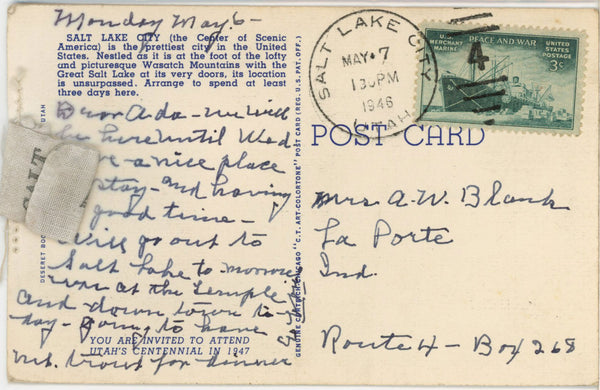 Monday May 6-
SALT LAKE CITY (the Center of Scenic
America) is the prettiest city in the United
States. Nestled as it is at the foot of the lofty
and picturesque Wasatch Mountains with the
Great Salt Lake at its very doors, its location
is unsurpassed. Arrange to spend at least
three days here.
Dear Ada- we will
be here until Wed
a nice place
stay- and having
good time-
Will go out to
Salt Lake to morrow
was at the Temple
and down town to-
day- going to have
mt. trout for dinner
YOU ARE INVITED TO ATTEND
UTAH'S CENTENNIAL IN 1947
SALT
DESERET BOO
GENUINE CURTEICH-CHICAGO "C.T. ART-COLORTONE" POST CARD (REG. U.S. PAT. OFF.)
SALT LAKE CITY
MAY 7
130PM
1946
UTAH
4
U.S.
MERCHANT
MARINE
PEACE AND WAR
UNITED
STATES
POSTAGE
3¢
POST CARD
Mrs. A. W. Blank
La Porte
Ind.
Route 4- Box 268